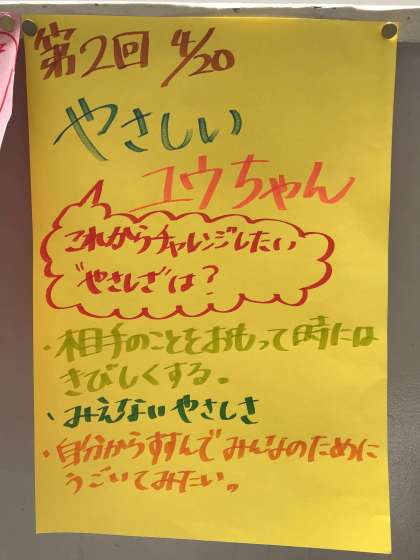 第2回 4/20
やさしい
ユウちゃん
これからチャレンジしたい
"やさしさ"は?
・相手のことをおもって時には
きびしくする。
・みえないやさしさ
・自分からすすんでみんなのために
うごいてみたい。